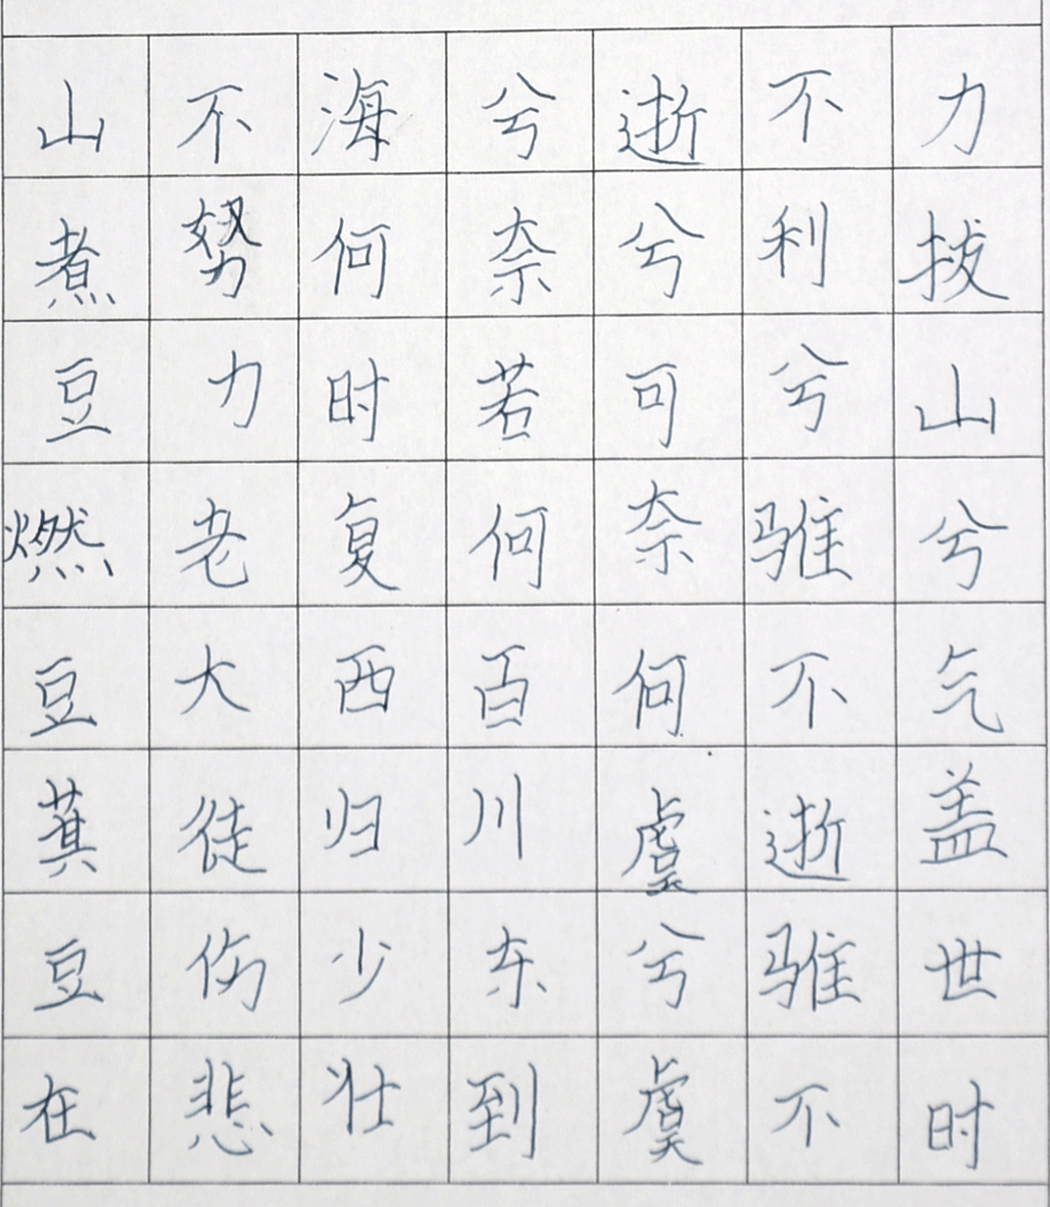 力拔山兮气盖世时
不利兮骓不逝骓不
逝兮可奈何虞兮虞
兮奈若何百川东到
海何时复西归少壮
不努力老大徒伤悲
山煮豆燃豆萁豆在